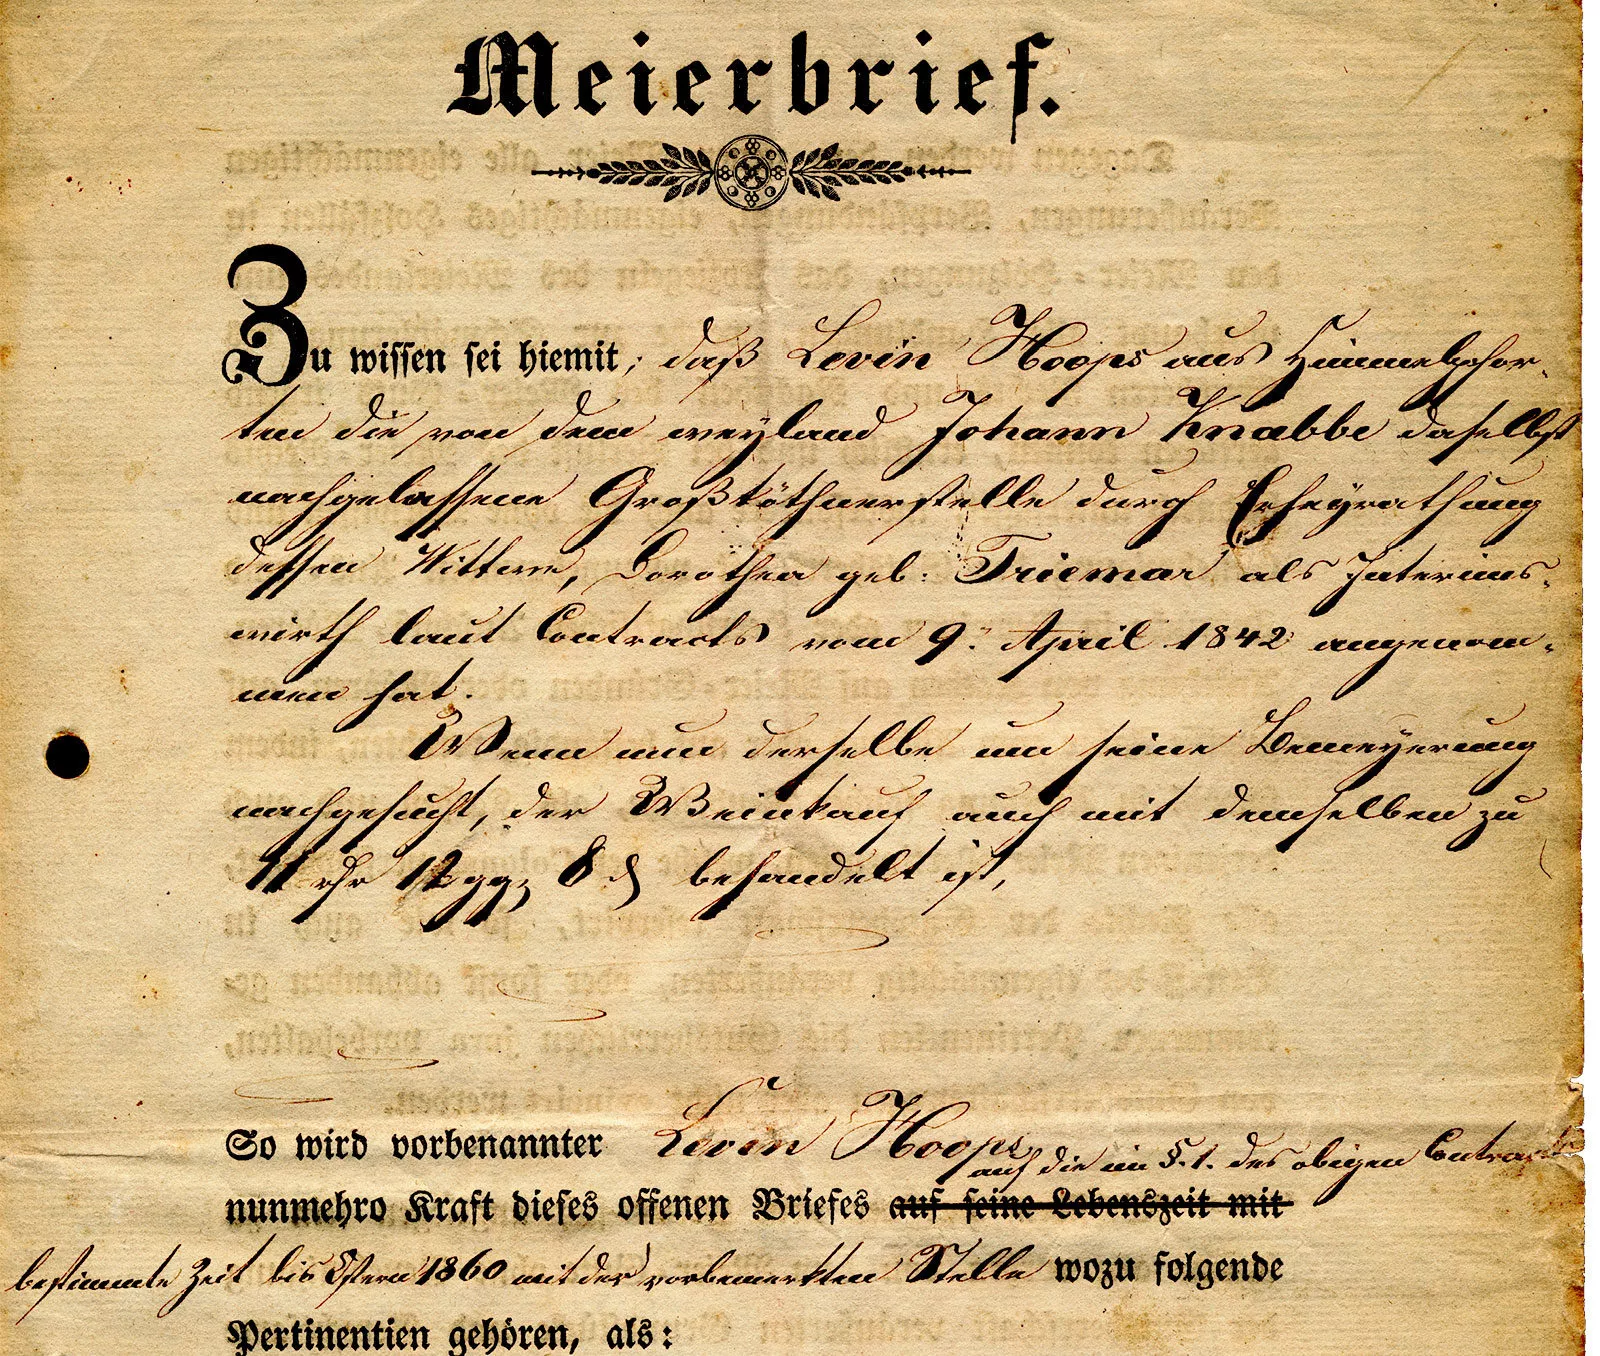 Meierbrief.
Zu wissen sei hiemit, daß Levin Hoops aus Himmelpfor-
ten die von dem weyland Johann Knabbe daselbst
nachgelassene Großköthnerstelle durch Erheyrathung
dessen Wittwe, Dorothea geb: Triemar als Interims-
wirth laut Contracts vom 9. April 1842 angenom-
men hat.
Wenn nun derselbe um seine Bemeyerung
nachgesucht, der Weinkauf auch mit demselben zu
11 rhr 12 ggr 8 d behandelt ist,
So wird vorbenannter Levin Hoops auf die im §. 1. des obigen Contracts
nunmehro Kraft dieses offenen Briefes auf seine Lebenszeit mit
bestimmte Zeit bis Ostern 1860 mit der vorbemerkten Stelle wozu folgende
Pertinentien gehören, als: